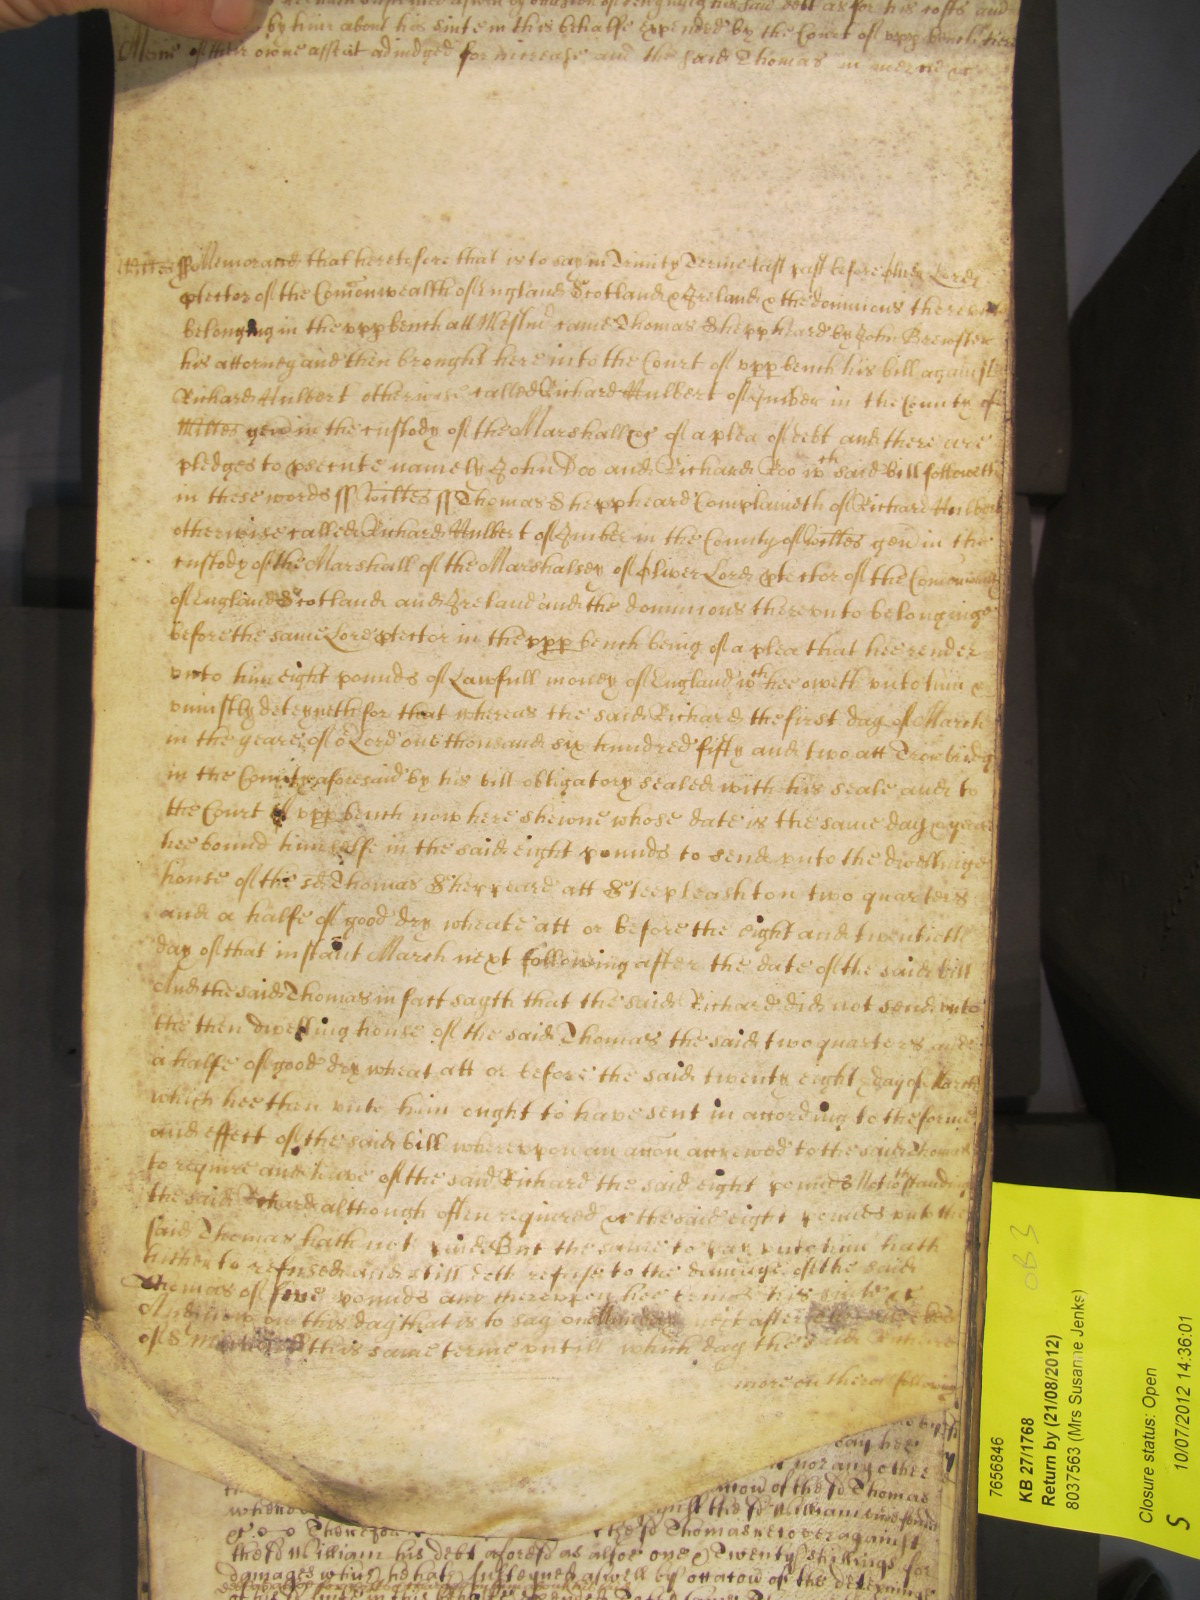 by him about his suite in this behalfe expended by the Court of vpp bench here
of their owne assent adiudged for increase and the said Thomas in mercie &c
Wiltes ss Memorand that heretofore that is to say in Trinity Terme last past before Oliver Lord
ptector of the Comonwealth of England Scotland & Ireland & the dominions therevnto
belonging in the vpp bench att Westmr came Thomas Sheppheard by John Brewster
his attorney and then brought here into the Court of vpp bench his bill against
Richard Hulbert otherwise called Richard Hulbert of Imber in the County of
Wiltes gen in the custody of the Marshall &c of a plea of debt and there are
pledges to psecute namely John Doo and Richard Roo wth said bill followeth
in these words ss Wiltes ss Thomas Sheppheard Complaineth of Richard Hulbert
otherwise called Richard Hulbert of Imber in the County of Wiltes gen in the
custody of the Marshall of the Marshalsey of Oliver Lord ptector of the Comonwealth
of England Scotland and Ireland and the dominions therevnto belonginge
before the same Lord ptector in the vpp bench being of a plea that hee render
vnto him eight pounds of Lawfull money of England wth hee oweth vnto him &
vniustly deteyneth for that whereas the said Richard the first day of March
in the yeare of or Lord one thousand six hundred fifty and two att Trowbridg
in the County aforesaid by his bill obligatory sealed with his seale and to
the Court of vpp bench now here shewne whose date is the same day & yeare
hee bound himselfe in the said eight pounds to send vnto the dwellinge
house of the sd Thomas Sheppeard att Steepleashton two quarters
and a halfe of good dry wheate att or before the eight and twentieth
day of that instant March next following after the date of the said bill
And the said Thomas in fact sayth that the said Richard did not send vnto
the then dwelling house of the said Thomas the said two quarters and
a halfe of good dry wheat att or before the said twenty eight day of March
which hee then vnto him ought to have sent in according to the forme
and effect of the said bill wherevpon an accon accrewed to the said Thomas
to require and have of the said Richard the said eight pounds Notwthstanding
the said Richard although often required &c the said eight pounds vnto the
said Thomas hath not paid But the same to pay vnto him hath
hitherto refused and still doth refuse to the damage of the said
Thomas of five pounds and therevpon hee brings his suite &c
And now on this day that is to say on Munday next after
of St this same terme vntill which day the said Richard
more on the roll following
day hee
nor any other
of the sd Thomas
against the sd William
&c Therefore the sd Thomas recover against
the sd William his debt aforesd as alsoe one & Twenty shillings for
damages which he hath susteyned aswell by occacon of the deteyning
7656846
KB 27/1768
Return by (21/08/2012)
8037563 (Mrs Susanne Jenks)
Closure status: Open
10/07/2012 14:36:01
S